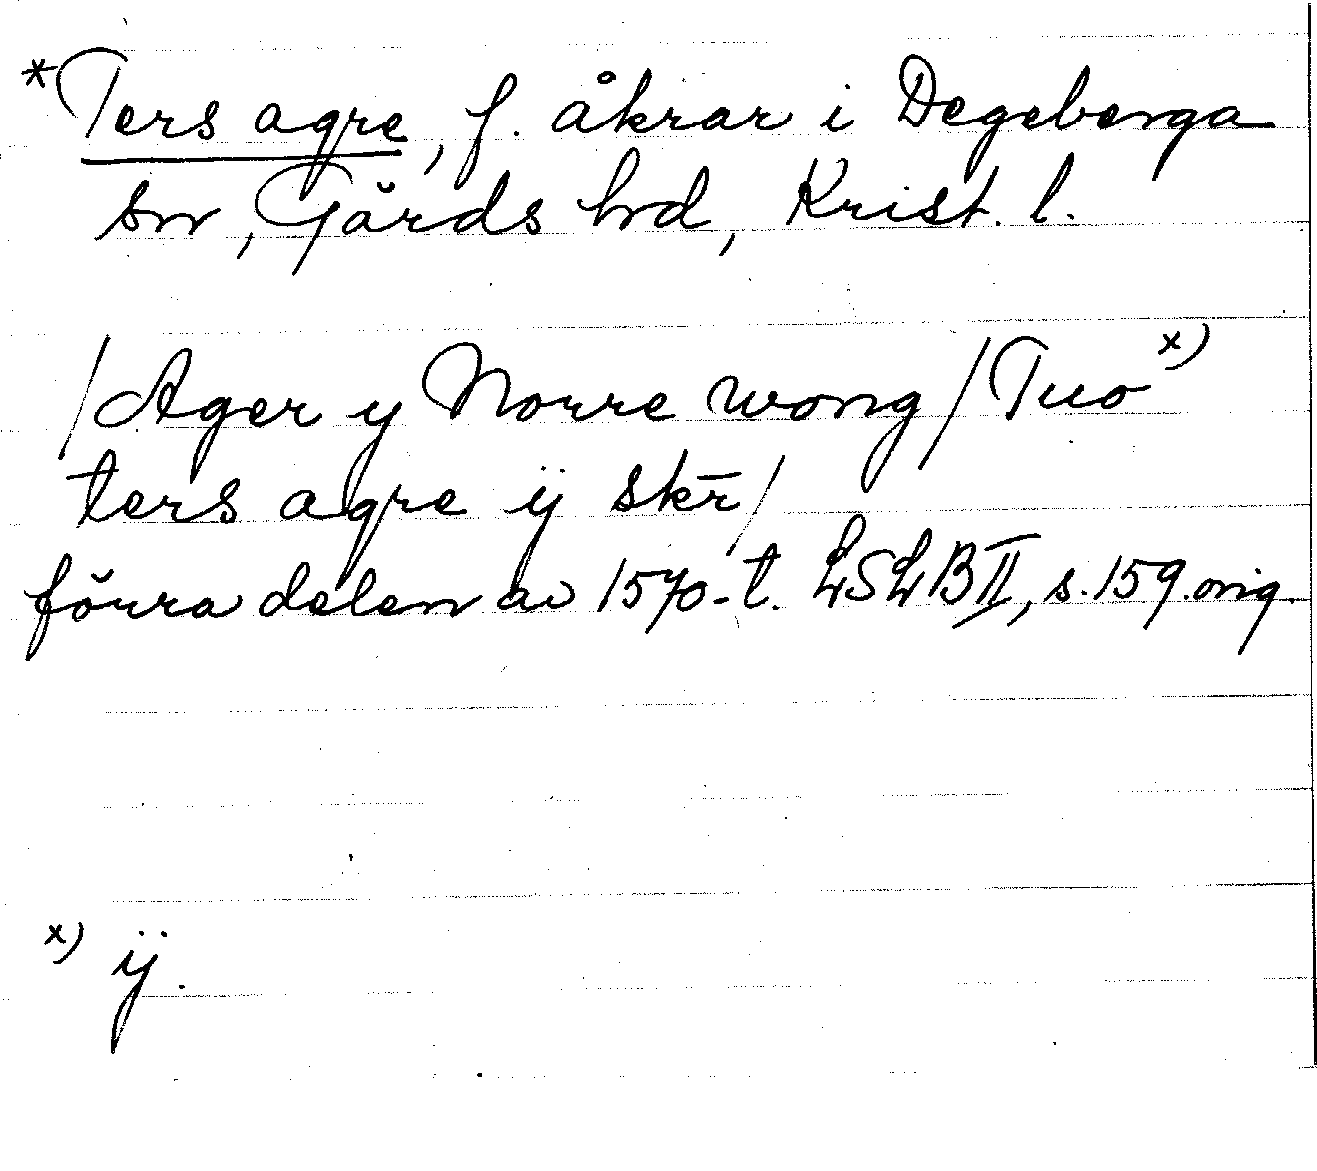 *Ters agre, f. åkrar i Degeberga
sn, Gärds hd, Krist. l.
/Ager y Norre wong/ Tuo x)
ters agre ÿ skr̄/
förra delen av 1570-t. LSLB II, s. 159. orig.
x) ÿ.